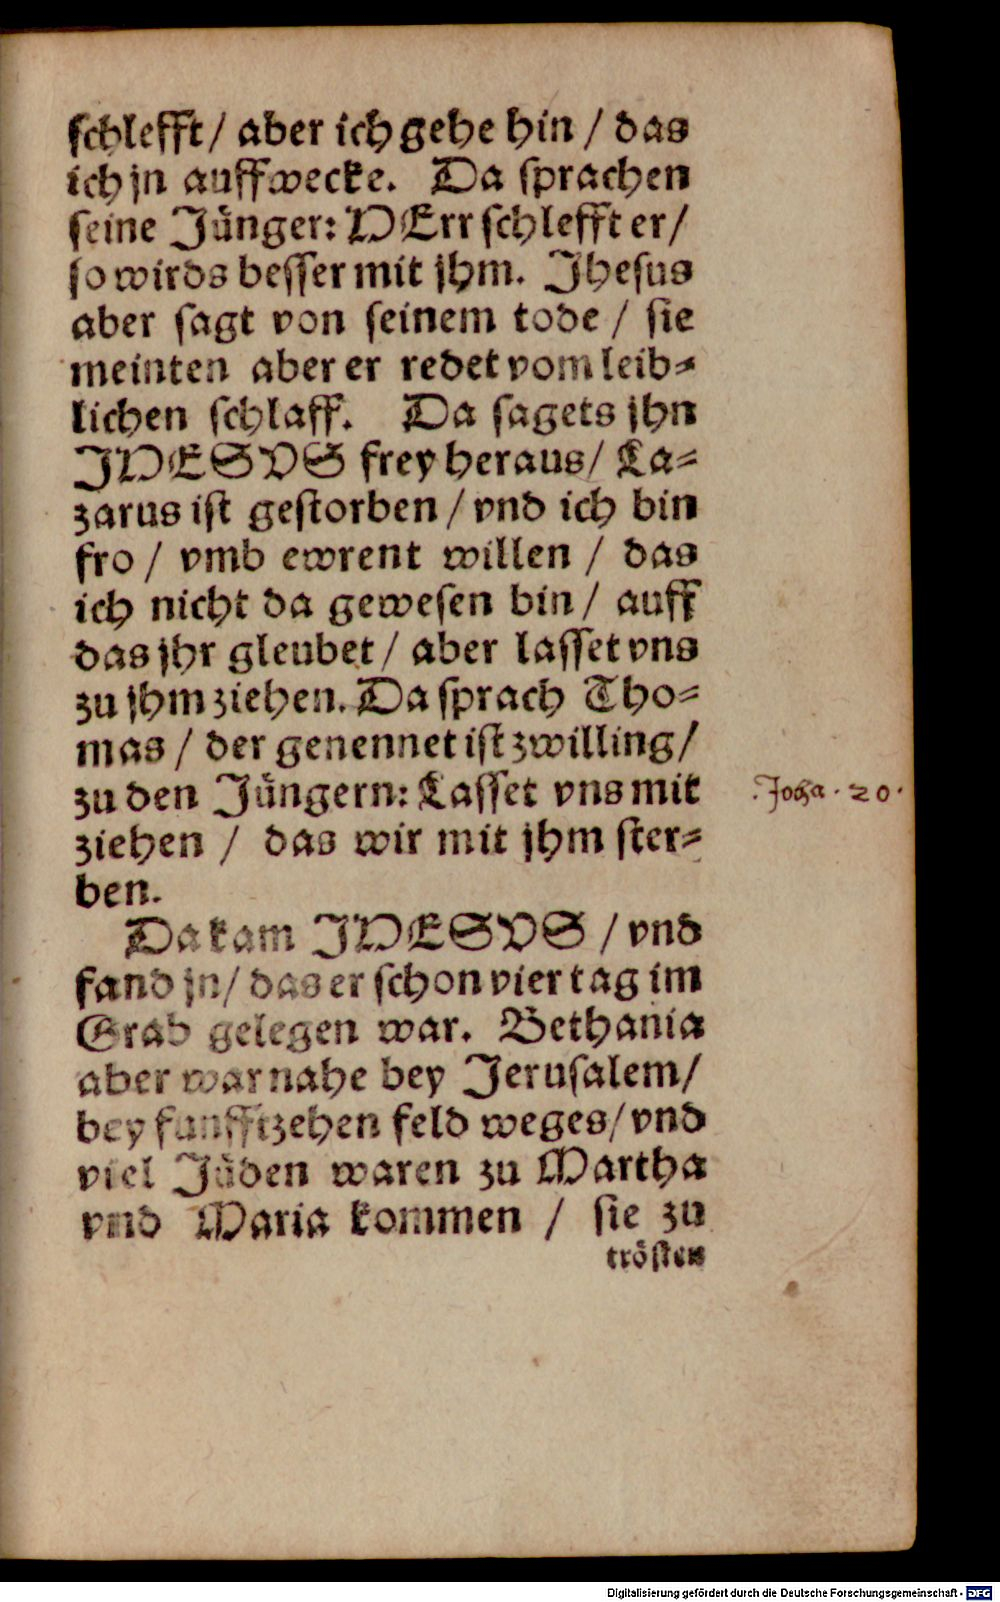 schlefft / aber ich gehe hin / das
ich jn auffwecke. Da sprachen
seine Jünger: HErr schlefft er /
so wirds besser mit jhm. Jhesus
aber sagt von seinem tode / sie
meinten aber er redet vom leib-
lichen schlaff. Da sagets jhn
JHESVS frey heraus / La-
zarus ist gestorben / vnd ich bin
fro / vmb ewrent willen / das
ich nicht da gewesen bin / auff
das jhr gleubet / aber lasset vns
zu jhm ziehen. Da sprach Tho-
mas / der genennet ist zwilling /
zu den Jüngern: Lasset vns mit
ziehen / das wir mit jhm ster-
ben.
Joha. 20.
Da kam JHESVS / vnd
fand jn / das er schon vier tag im
Grab gelegen war. Bethania
aber war nahe bey Jerusalem /
bey funfftzehen feld weges / vnd
viel Jüden waren zu Martha
vnd Maria kommen / sie zu
trösten
Digitalisierung gefördert durch die Deutsche Forschungsgemeinschaft - DFG